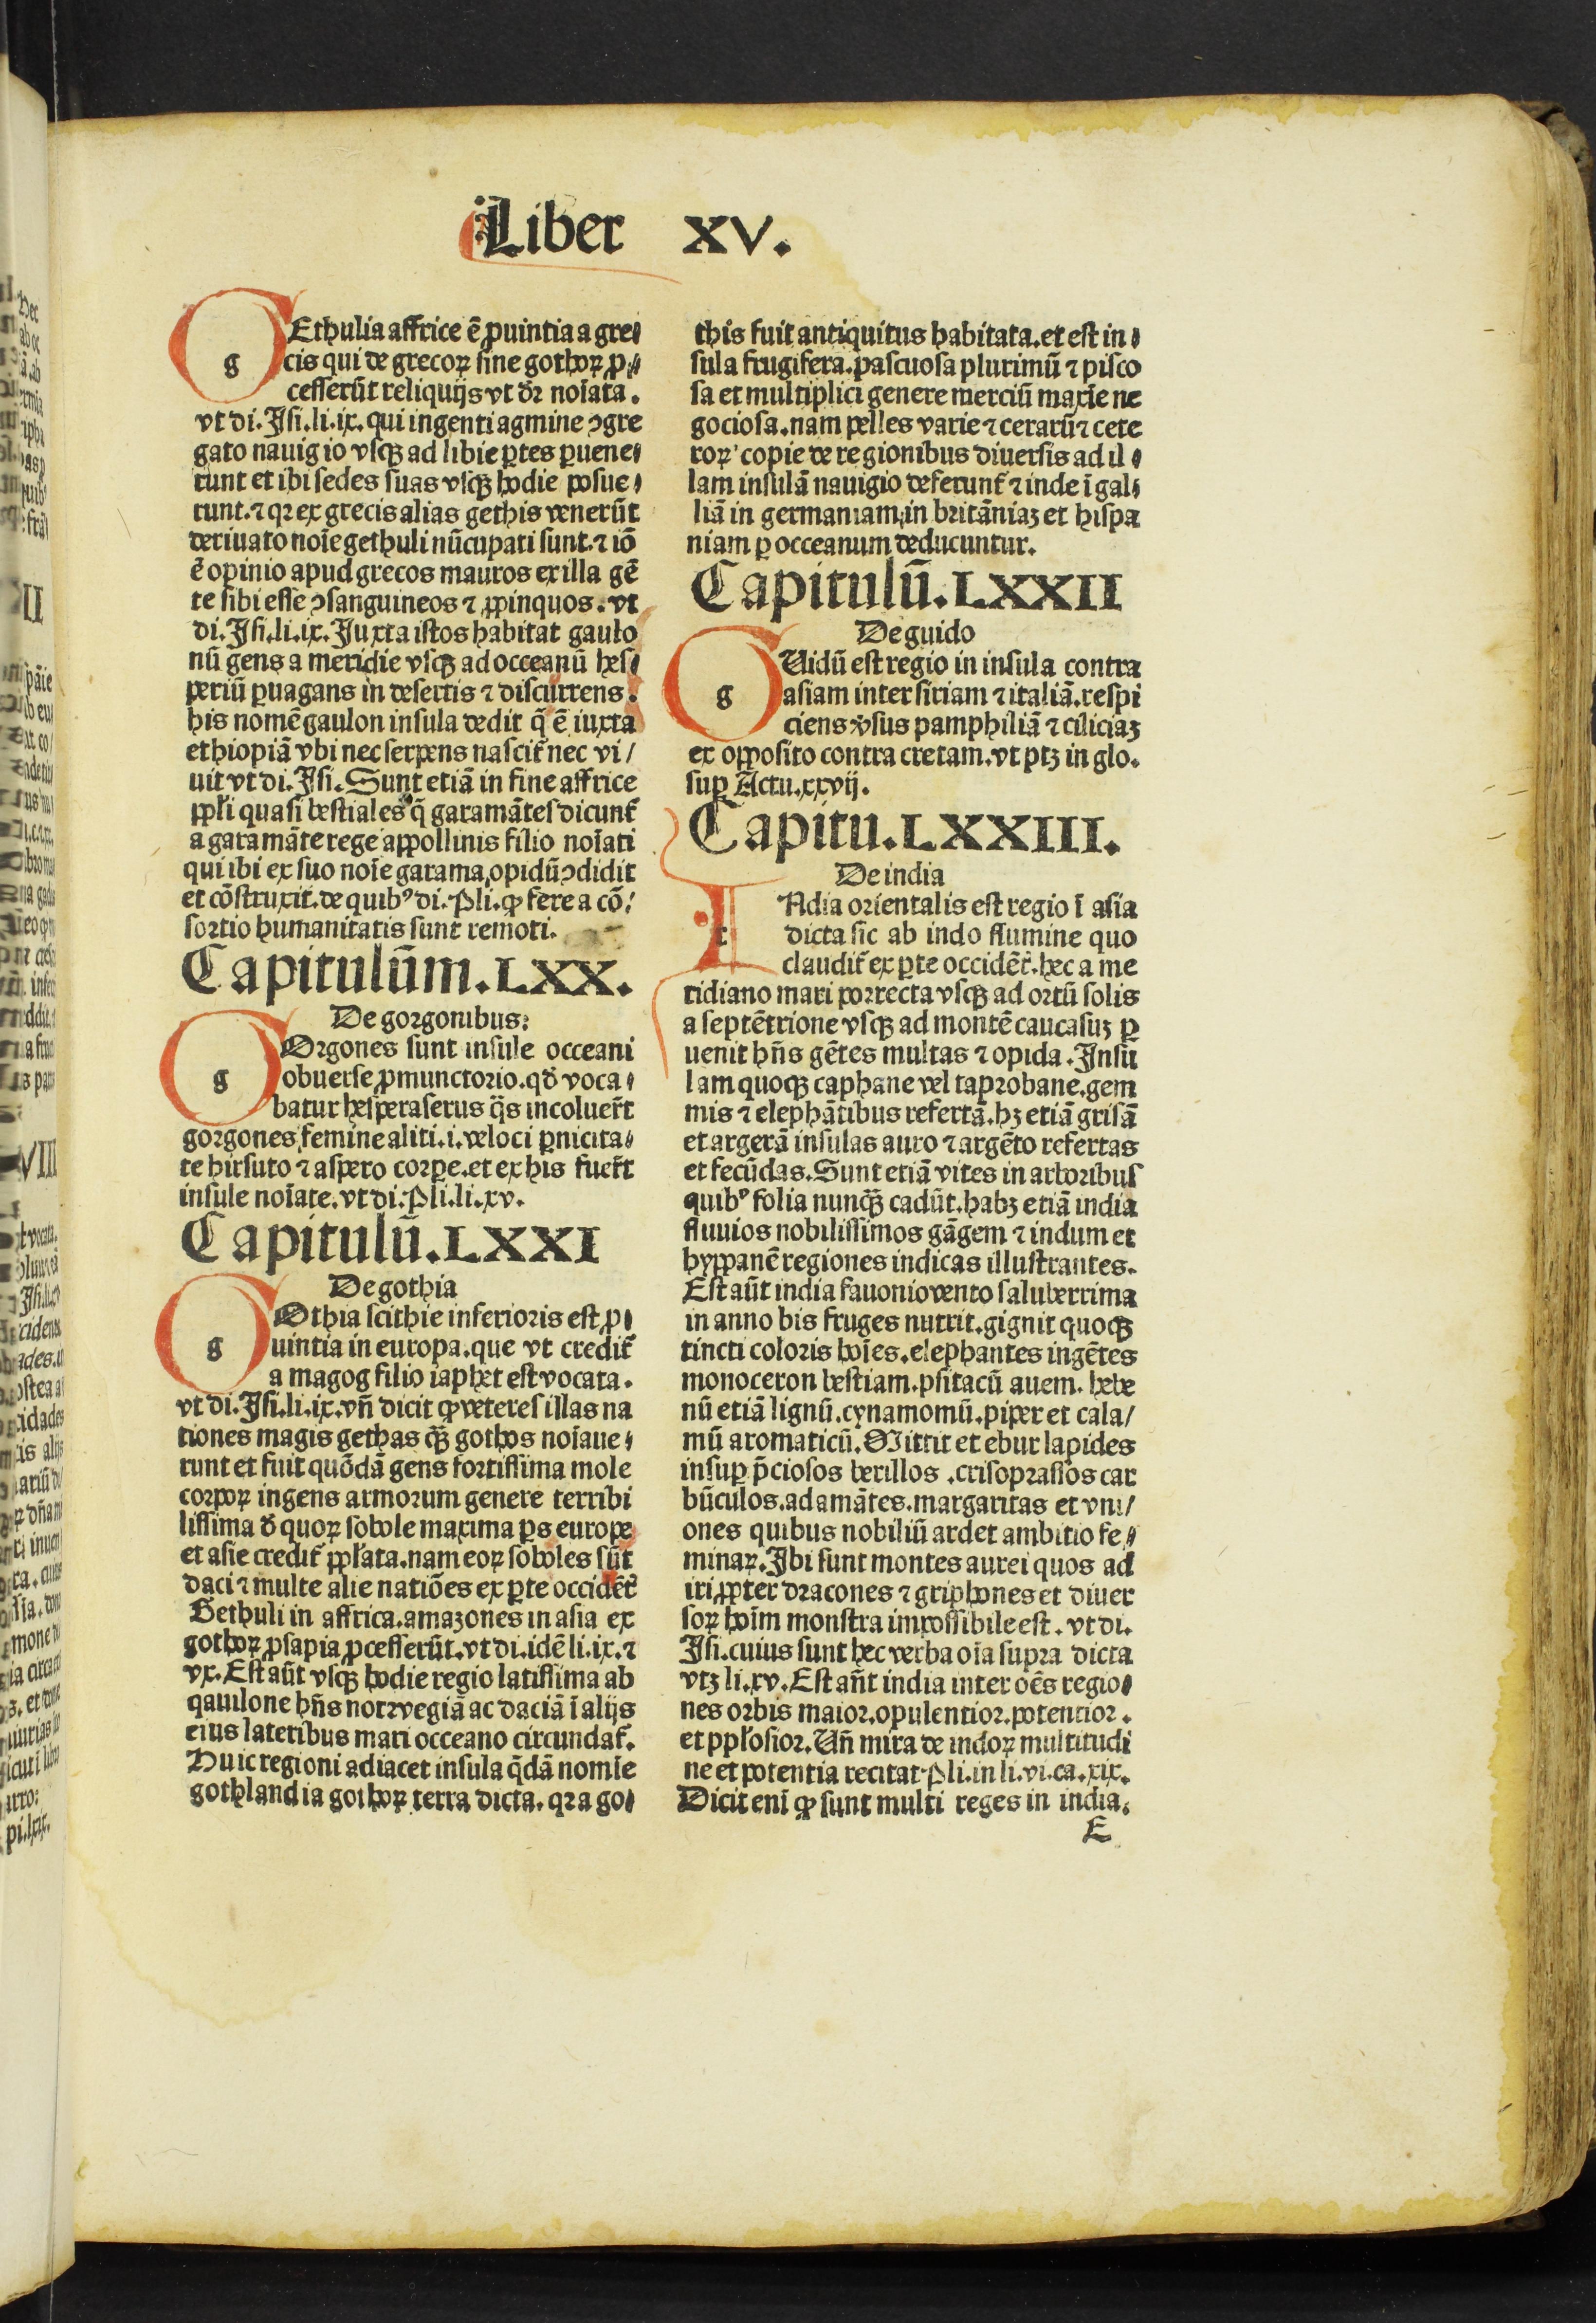 Liber XV.
gEthulia affrice ē ꝓuintia a gre⸗
cis qui de grecoꝝ siue gothoꝝ ꝓ⸗
cesserūt reliquijs vt dr̄ noīata.
vt di. Isi. li. ix. qui ingenti agmine ↄgre
gato nauigio vsqꝫ ad libie ꝑtes ꝑuene⸗
runt et ibi sedes suas vsqꝫ hodie posue⸗
runt. ⁊ qꝛ ex grecis alias gethis venerūt
deriuato noīe gethuli nūcupati sunt. ⁊ iō
ē opinio apud grecos mauros ex illa gē
te sibi esse ↄsanguineos ⁊ ꝓpinquos. vt
di. Isi. li. ix. Iuxta istos habitat gaulo
nū gens a meridie vsqꝫ ad occeanū hes⸗
periū ꝑuagans in desertis ⁊ discurrens.
his nomē gaulon insula dedit q̄ ē iuxta
ethiopiā vbi nec serpens nascit̄ nec vi/
uit vt di. Isi. Sunt etiā in fine affrice
ppl̄i quasi bestiales q̄ garamātes dicunt̄
a garamāte rege appollinis filio noīati
qui ibi ex suo noīe garama opidū ↄdidit
et cōstruxit. de quibꝰ di. Pli. ꝙ fere a cō/
sortio humanitatis sunt remoti.
Capitulūm. LXX.
De gorgonibus:
gOrgones sunt insule occeani
obuerse ꝓmunctorio. qd̄ voca⸗
batur hesperaserus q̄s incoluer̄t
gorgones femine aliti. i. veloci ꝑnicita⸗
te hirsuto ⁊ aspero corꝑe. et ex his fuer̄t
insule noīate. vt di. Pli. li. xv.
Capitulū. LXXI
De gothia
gOthia scithie inferioris est ꝓ⸗
uintia in europa. que vt credit̄
a magog filio iaphet est vocata.
vt di. Isi. li. ix. vn̄ dicit ꝙ veteres illas na
tiones magis gethas qꝫ̄ gothos noīaue⸗
runt et fuit quōdā gens fortissima mole
corpoꝝ ingens armorum genere terribi
lissima d̄ quoꝝ sobole maxima ꝑs europe
et asie credit̄ ppl̄ata. nam eoꝝ soboles sūt
daci ⁊ multe alie natiōes ex ꝑte occidēt̄
Gethuli in affrica. amazones in asia ex
gothoꝝ ꝓsapia ꝓcesserūt. vt di. idē li. ix. ⁊
vx. Est aūt vsqꝫ hodie regio latissima ab
qauilone hn̄s norꝛvegiā ac daciā ī alijs
eius lateribus mari occeano circundat̄.
Huic regioni adiacet insula q̄dā nomīe
gothlandia gothoꝝ terra dicta. qꝛa go⸗
this fuit antiquitus habitata. et est in⸗
sula frugifera. pascuosa plurimū ⁊ pisco
sa et multiplici genere merciū maxīe ne
gociosa. nam pelles varie ⁊ cerarū ⁊ cete
roꝝ copie de regionibus diuersis ad il⸗
lam insulā nauigio deferunt̄ ⁊ inde ī gal⸗
liā in germaniam, in britāniaꝫ et hispa
niam ꝑ occeanum deducuntur.
Capitulū. LXXII
De guido
gUidū est regio in insula contra
asiam inter siriam ⁊ italiā. respi
ciens v̄sus pamphiliā ⁊ ciliciaꝫ
ex opposito contra cretam. vt ptꝫ in glo.
suꝑ Actu. xxvij.
Capitu. LXXIII.
De india
INdia orientalis est regio ī asia
dicta sic ab indo flumine quo
claudit̄ ex ꝑte occidēt̄. hec a me
ridiano mari porrecta vsqꝫ ad ortū solis
a septētrione vsqꝫ ad montē caucasuꝫ ꝑ
uenit hn̄s gētes multas ⁊ opida. Insu
lam quoqꝫ caphane vel taprobane. gem
mis ⁊ elephātibus refertā. hꝫ etiā grisā
et argerā insulas auro ⁊ argēto refertas
et fecūdas. Sunt etiā vites in arboribus
quibꝰ folia nunqꝫ̄ cadūt. habꝫ etiā india
fluuios nobilissimos gāgem ⁊ indum et
hyppanē regiones indicas illustrantes.
Est aūt india fauonio vento saluberrima
in anno bis fruges nutrit. gignit quoqꝫ
tincti coloris hoīes. elephantes ingētes
monoceron bestiam. psitacū auem. hebe
nū etiā lignū. cynamomū. piper et cala/
mū aromaticū. Mittit et ebur lapides
insuꝑ p̄ciosos berillos. crisoprasios car
būculos. adamātes. margaritas et vni/
ones quibus nobiliū ardet ambitio fe⸗
minaꝝ. Ibi sunt montes aurei quos ad
iri ꝓpter dracones ⁊ griphones et diuer
soꝝ hoīm monstra impossibile est. vt di.
Isi. cuius sunt hec verba oīa supra dicta
vtꝫ li. xv. Est aūt india inter oēs regio⸗
nes orbis maior. opulentior. potentior.
et ppl̄osior. Un̄ mira de indoꝝ multitudi
ne et potentia recitat Pli. in li. vi. ca. xix.
Dicit enī ꝙ sunt multi reges in india.
E